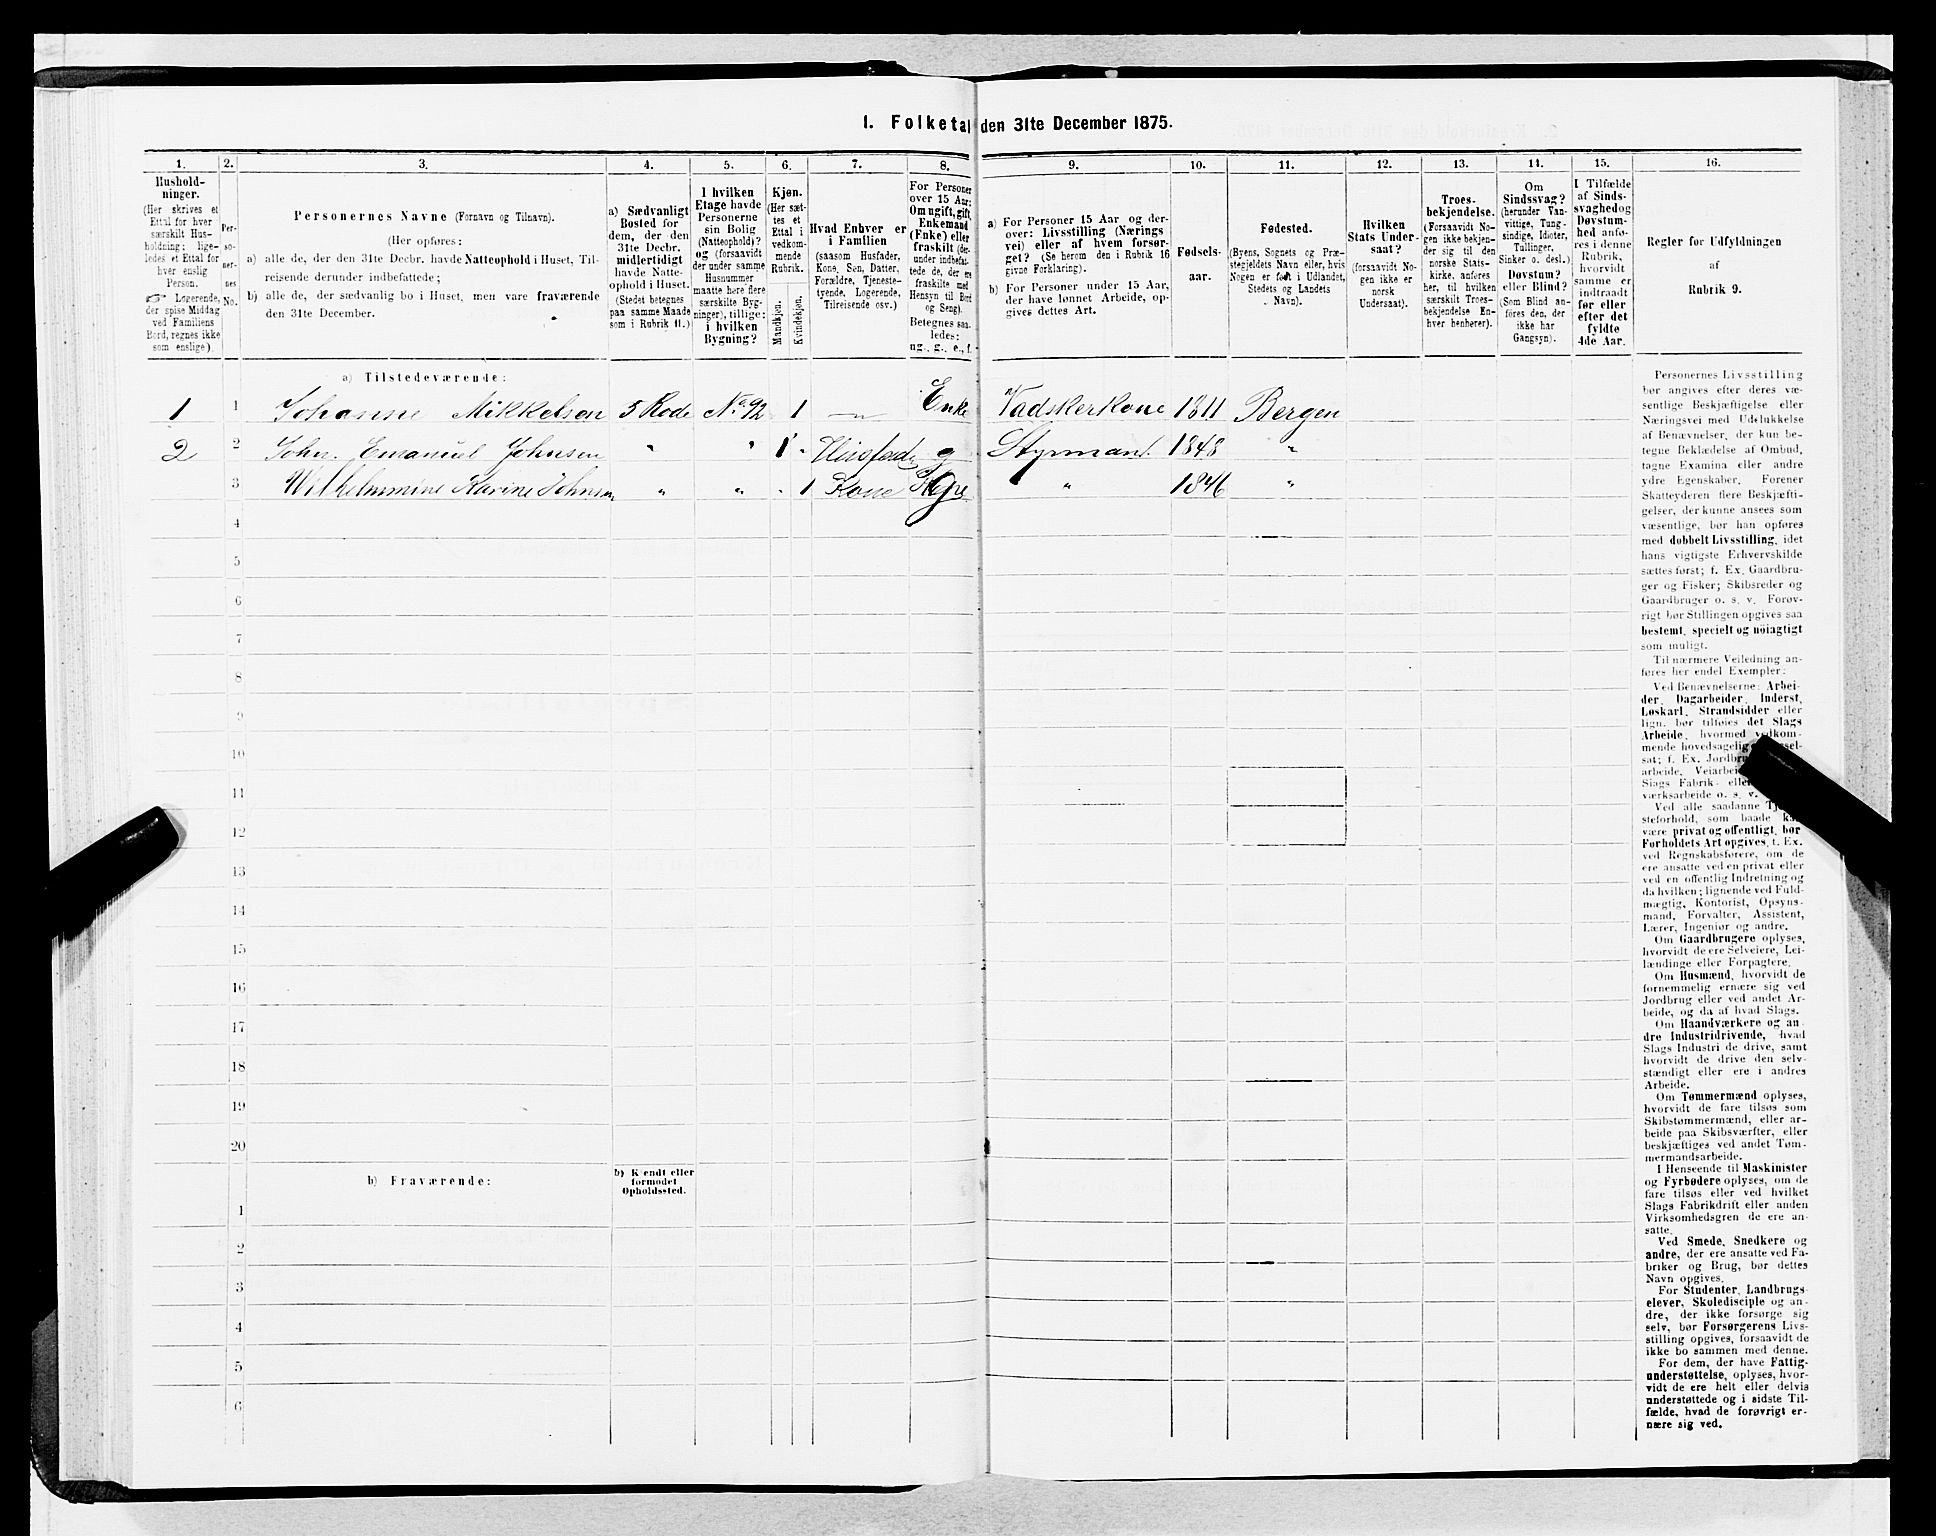 1. Folketal den 31te December 1875.
1. 2. 3. 4. 5. 6. 7. 8. 9. 10. 11. 12. 13. 14. 15. 16.
Hushold-
ninger.
(Her skrives et
Ettal for hver
særskilt Hus-
holdning; lige-
ledes et Ettal for
hver enslig
Person.
☞ Logerende,
der spise Middag
ved Familiens
Bord, regnes ikke
som enslige).
Per-
so-
ner-
nes
No.
Personernes Navne (Fornavn og Tilnavn).
(Her opføres:
a) alle de, der den 31te Decbr. havde Natteophold i Huset, Til-
reisende derunder indbefattede;
b) alle de, der sædvanlig bo i Huset, men vare fraværende
den 31te December.
a) Sædvanligt
Bosted for
dem, der den
31te Decbr.
midlertidigt
havde Natte-
ophold i Huset.
(Stedet betegnes
paa samme Maade
som i Rubrik 11.)
I hvilken
Etage havde
Personerne
sin Bolig
(Natteophold)?
og (forsaavidt
der under samme
Husnummer
maatte høre flere
særskilte Byg-
ninger), tillige:
i hvilken
Bygning?
Kjøn.
(Her sæt-
tes et
Ettal i
vedkom-
mende
Rubrik.
Mandkjøn.
Kvindekjøn.
Hvad Enhver er
i Familien
(saasom Husfader,
Kone, Søn, Datter,
Forældre, Tjeneste-
tyende, Logerende,
Tilreisende osv.)
For Personer
over 15 Aar:
Om ugift, gift,
Enkemand
(Enke) eller
fraskilt (der-
under indbefat-
tede de, der ere
fraskilte med
Hensyn til Bord
og Seng).
Betegnes saa-
ledes:
ug., g., e., f.
a) For Personer 15 Aar og der-
over: Livsstilling (Nærings
vei) eller af hvem forsør-
get? (Se herom den i Rubrik 16
givne Forklaring).
b) For Personer under 15 Aar,
der have lønnet Arbeide, op-
gives dettes Art.
Fødsels-
aar.
Fødested.
(Byens, Sognets og Præ-
stegjeldets Navn eller, hvis
Nogen er født i Udlandet,
Stedets og Landets
Navn).
Hvilken
Stats Under-
saat?
(forsaavidt No-
gen ikke er
norsk
Undersaat).
Troes-
bekjendelse.
(Forsaavidt No-
gen ikke bekjen-
der sig til den
norske Stats-
kirke, anføres
her, til hvilken
særskilt Troes-
bekjendelse En-
hver henhører).
Om
Sindssvag?
(herunder Van-
vittige, Tung-
sindige, Idioter,
Tullinger,
Sinker o. desl.)
Døvstum?
eller Blind?
(Som Blind an-
føres den, der
ikke har
Gangsyn).
I Tilfælde
af Sinds-
svaghed og
Døvstum-
hed anfø-
res i denne
Rubrik,
hvorvidt
samme er
indtraadt
før eller
efter det
fyldte
4de Aar.
Regler for Udfyldningen
af
Rubrik 9.
a) Tilstedeværende:
1 1 Johanne Mikkelsen 5 Rode No. 92 1 Enke Vadskerkone 1811 Bergen
2 2 John. Emanuel Johnsen " " 1 Husfader g Styrmand. 1848 "
3 Wilhelmmine Karine Johnsen " " 1 Kone " 1846 "
4
5
6
7
8
9
10
11
12
13
14
15
16
17
18
19
20
b) Fraværende:
b) Kjendt eller
formodet
Opholdssted.
1
2
3
4
5
6
Personernes Livsstilling
bør angives efter deres væ-
sentlige Beskjæftigelse eller
Næringsvei med Udelukkelse
af Benævnelser, der kun be-
tegne Beklædelse af Ombud,
tagne Examina eller andre
ydre Egenskaber. Forener
Skatteyderen flere Beskjæfti-
gelser, der kunne ansees som
væsentlige, bør han opføres
med dobbelt Livsstilling, idet
hans vigtigste Erhvervskilde
sættes først; f. Ex. Gaardbru-
ger og Fisker; Skibsreder og
Gaardbruger o. s. v. Forøv-
rigt bør Stillingen opgives saa
bestemt, specielt og nöiagtigt
som muligt.
Til nærmere Veiledning an-
føres her endel Exempler:
Ved Benævnelserne: Arbei-
der, Dagarbeider, Inderst,
Løskarl, Strandsidder eller
lign. bør tilføies det Slags
Arbeide, hvormed vedkom-
mende hovedsagelig
sat; f. Ex.
arbeide,
Slags Fabrik-
værksarbeide o. s. v.
Ved alle saadanne
steforhold, som baade
være privat og offentligt, bør
Forholdets Art opgives, f. Ex.
ved Regnskabsførere, om de
ere ansatte ved en privat eller
ved en offentlig Indretning og
da hvilken; lignende ved Fuld-
mægtig, Kontorist, Opsyns-
mand, Forvalter, Assistent,
Lærer, Ingeniør og andre.
Om Gaardbrugere oplyses,
hvorvidt de ere Selveiere, Lei-
lændinge eller Forpagtere.
Om Husmænd, hvorvidt de
fornemmelig ernære sig ved
Jordbrug eller ved andet Ar-
beide, og da af hvad Slags.
Om Haandværkere og an-
dre Industridrivende, hvad
Slags Industri de drive, samt
hvorvidt de drive den selv-
stændigt eller ere i andres
Arbeide.
Om Tømmermænd oplyses,
hvorvidt de fare tilsøs som
Skibstømmermænd, eller ar-
beide paa Skibsværfter, eller
beskjæftiges ved andet Tøm-
mermandsarbeide.
I Henseende til Maskinister
og Fyrbødere oplyses, om de
fare tilsøs eller ved hvilket
Slags Fabrikdrift eller anden
Virksomhedsgren de ere an-
satte.
Ved Smede, Snedkere og
andre, der ere ansatte ved Fa-
briker og Brug, bør dettes
Navn opgives.
For Studenter, Landbrugs-
elever, Skoledisciple og an-
dre, der ikke forsørge sig
selv, bør Forsørgerens Livs-
stilling opgives, forsaavidt de
ikke bo sammen med denne.
For dem, der have Fattig-
understøttelse, oplyses, hvor-
vidt de ere helt eller delvis
understøttede og i sidste Til-
fælde, hvad de forøvrigt er-
nære sig ved.